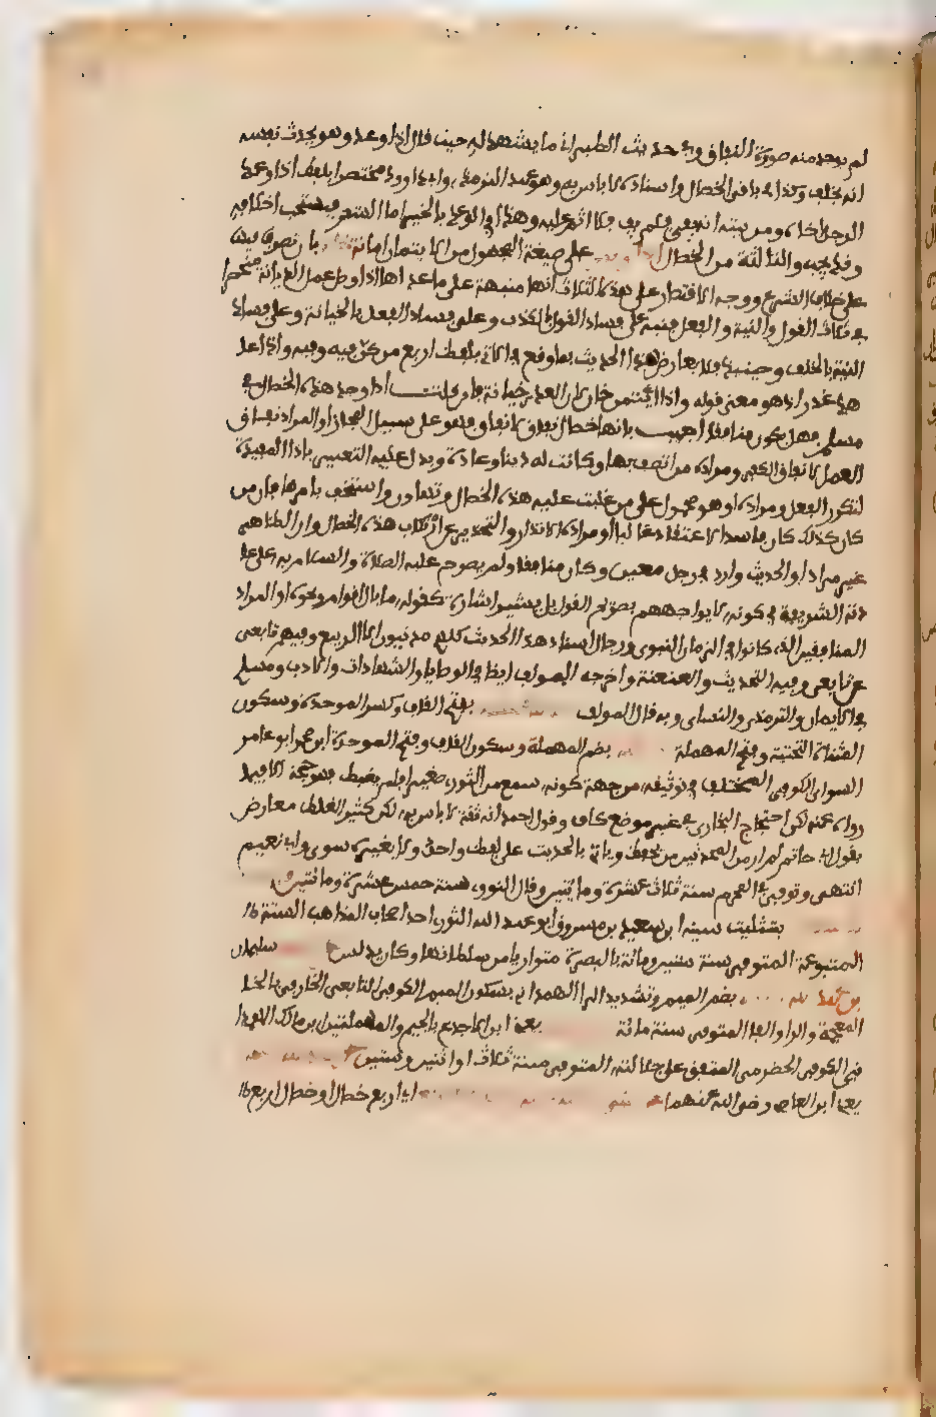 لم يوجد منه صورة النفاق وفي حديث الطبراني ما يشهد له حيث قال اذا وعد وهو يحدث نفسه
انه يخلف وكذا في باقي الخصال واسناده لا باس به وهو عند الترمذي وابي داوود مختصرا بلفظ اذا وعد
الرجل اخاه ومن نيته ان يفي فلم يف فلا اثم عليه وهذا في الوعد بالخير اما الشر فيستحب اخلافه
وقد يجب والثالثة من الخصال على صيغة المجهول من الايتمان امانة بان تصرف فيها
على خلاف الشرع ووجه الاقتصار على هذه الثلاث انها منبهة على ما عداها اذ اصل عمل الديانة منحصر
في ثلاث القول والنية والفعل فنبه على فساد القول بالكذب وعلى فساد الفعل بالخيانة وعلى فساد
النية بالخلف وحينئذ فلا يعارض هذا الحديث بما وقع في الاتي بلفظ اربع من كن فيه وفيه واذا عاهد
غدر اذ هو معنى قوله واذا ائتمن خان لان الغدر خيانة فان قلت اذا وجد هذه الخصال في
مسلم فهل يكون منافقا اجيب بانها خصال نفاق لا نفاق فهو على سبيل المجاز او المراد نفاق
العمل لا نفاق الكفر ومراده من اتصف بها وكانت له دينا وعادة ويدل عليه التعبير باذا المفيدة
لتكرر الفعل ومراده او هو محمول على من غلبت عليه هذه الخصال وتهاون واستخف بامرها فان من
كان كذلك كان فاسد الاعتقاد غالبا او مراده الانذار والتحذير عن ارتكاب هذه الخصال وان الظاهر
غير مراد او الحديث وارد في رجل معين وكان منافقا ولم يصرح عليه الصلاة والسلام به على عا
دته الشريفة في كونه لا يواجههم بصريح القول بل يشير اشارة كقوله ما بال اقوام ونحوه او المراد
المنافقين الذين كانوا في الزمان النبوي ورجال اسناد هذا الحديث كلهم مدنيون الا الربيع وفيهم تابعي
عن تابعي وفيه التحديث والعنعنة واخرجه المولف ايضا في الوصايا والشهادات والادب ومسلم
في الايمان والترمذي والنساي وبه قال المولف بفتح القاف وكسر الموحدة وسكون
المثناة التحتية وفتح المهملة بضم المهملة وسكون القاف وفتح الموحدة ابن محمد ابو عامر
السواي الكوفي المختلف في توثيقه من جهة كونه سمع من الثوري صغيرا فلم يضبط فهو حجة الا فيما
رواه عنه لكن احتجاج البخاري به في غير موضع كاف وقول احمد انه ثقة لا باس به لكن كثير الغلط معارض
بقول ابي حاتم لم ار من المحدثين من يحفظ وياتي بالحديث على لفظ واحد ولا يغيره سوى وابي نعيم
انتهى وتوفي في المحرم سنة ثلاث عشرة ومايتين وقال النووي سنة خمس عشرة ومائتين
بتثليث سينه ابن سعيد بن مسروق ابو عبد الله الثوري احد اصحاب المذاهب الستة
المتبوعة المتوفى سنة ستين ومائة بالبصرة متواريا من سلطانها وكان يدلس سليمان
بضم الميم وتشديد الراء الهمداني بسكون الميم الكوفي التابعي الخارفي بالخاء
المعجمة والراء والفاء المتوفى سنة مائة يعني ابن الاجدع بالجيم والمهملتين ابن مالك الهمدا
ني الكوفي الحضرمي المتفق على جلالته المتوفى سنة ثلاث او اثنين وستين
يعني ابن العاص رضي الله عنهما اي اربع خصال او خصال اربع